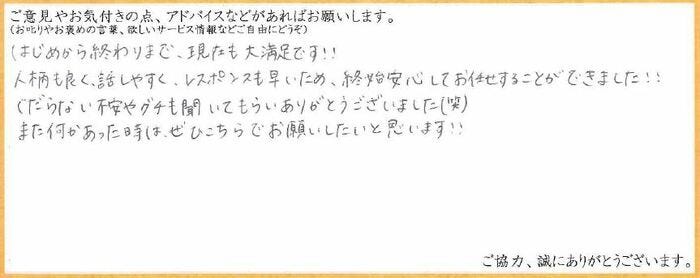 ご意見やお気付きの点、アドバイスなどがあればお願いします。
(お叱りやお褒めの言葉、欲しいサービス情報などご自由にどうぞ)
はじめから終わりまで、現在も大満足です!!
人柄も良く、話しやすく、レスポンスも早いため、終始安心してお任せすることができました!!
くだらない不安やグチも聞いてもらいありがとうございました(笑)
また何かあった時は、ぜひこちらでお願いしたいと思います!!
ご協力、誠にありがとうございます。